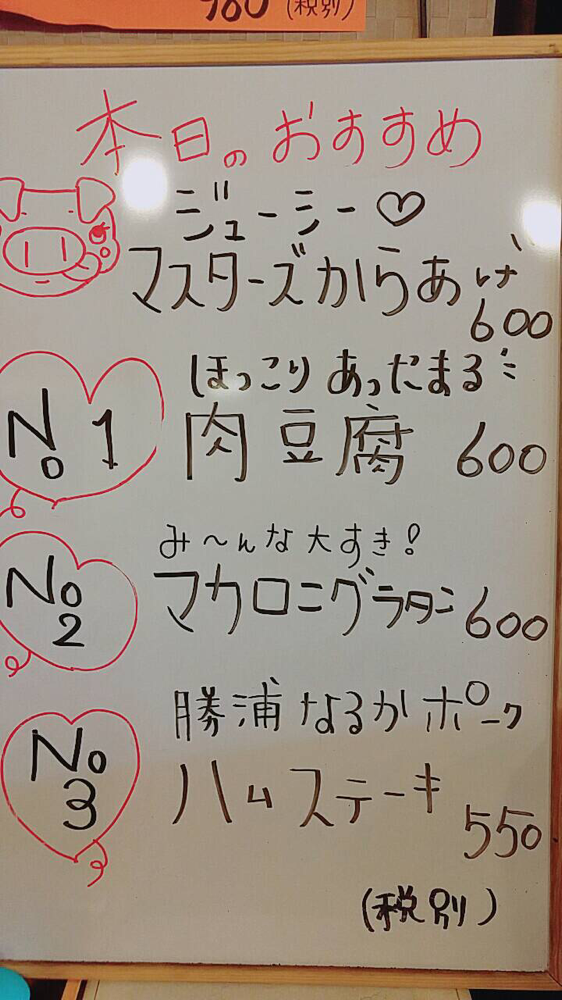 (税別)
本日のおすすめ
ジューシー♡
マスターズからあげ
600
No 1
ほっこりあったまる
肉豆腐 600
No 2
み〜んな大すき!
マカロニグラタン 600
No 3
勝浦なるかポーク
ハムステーキ
550
(税別)